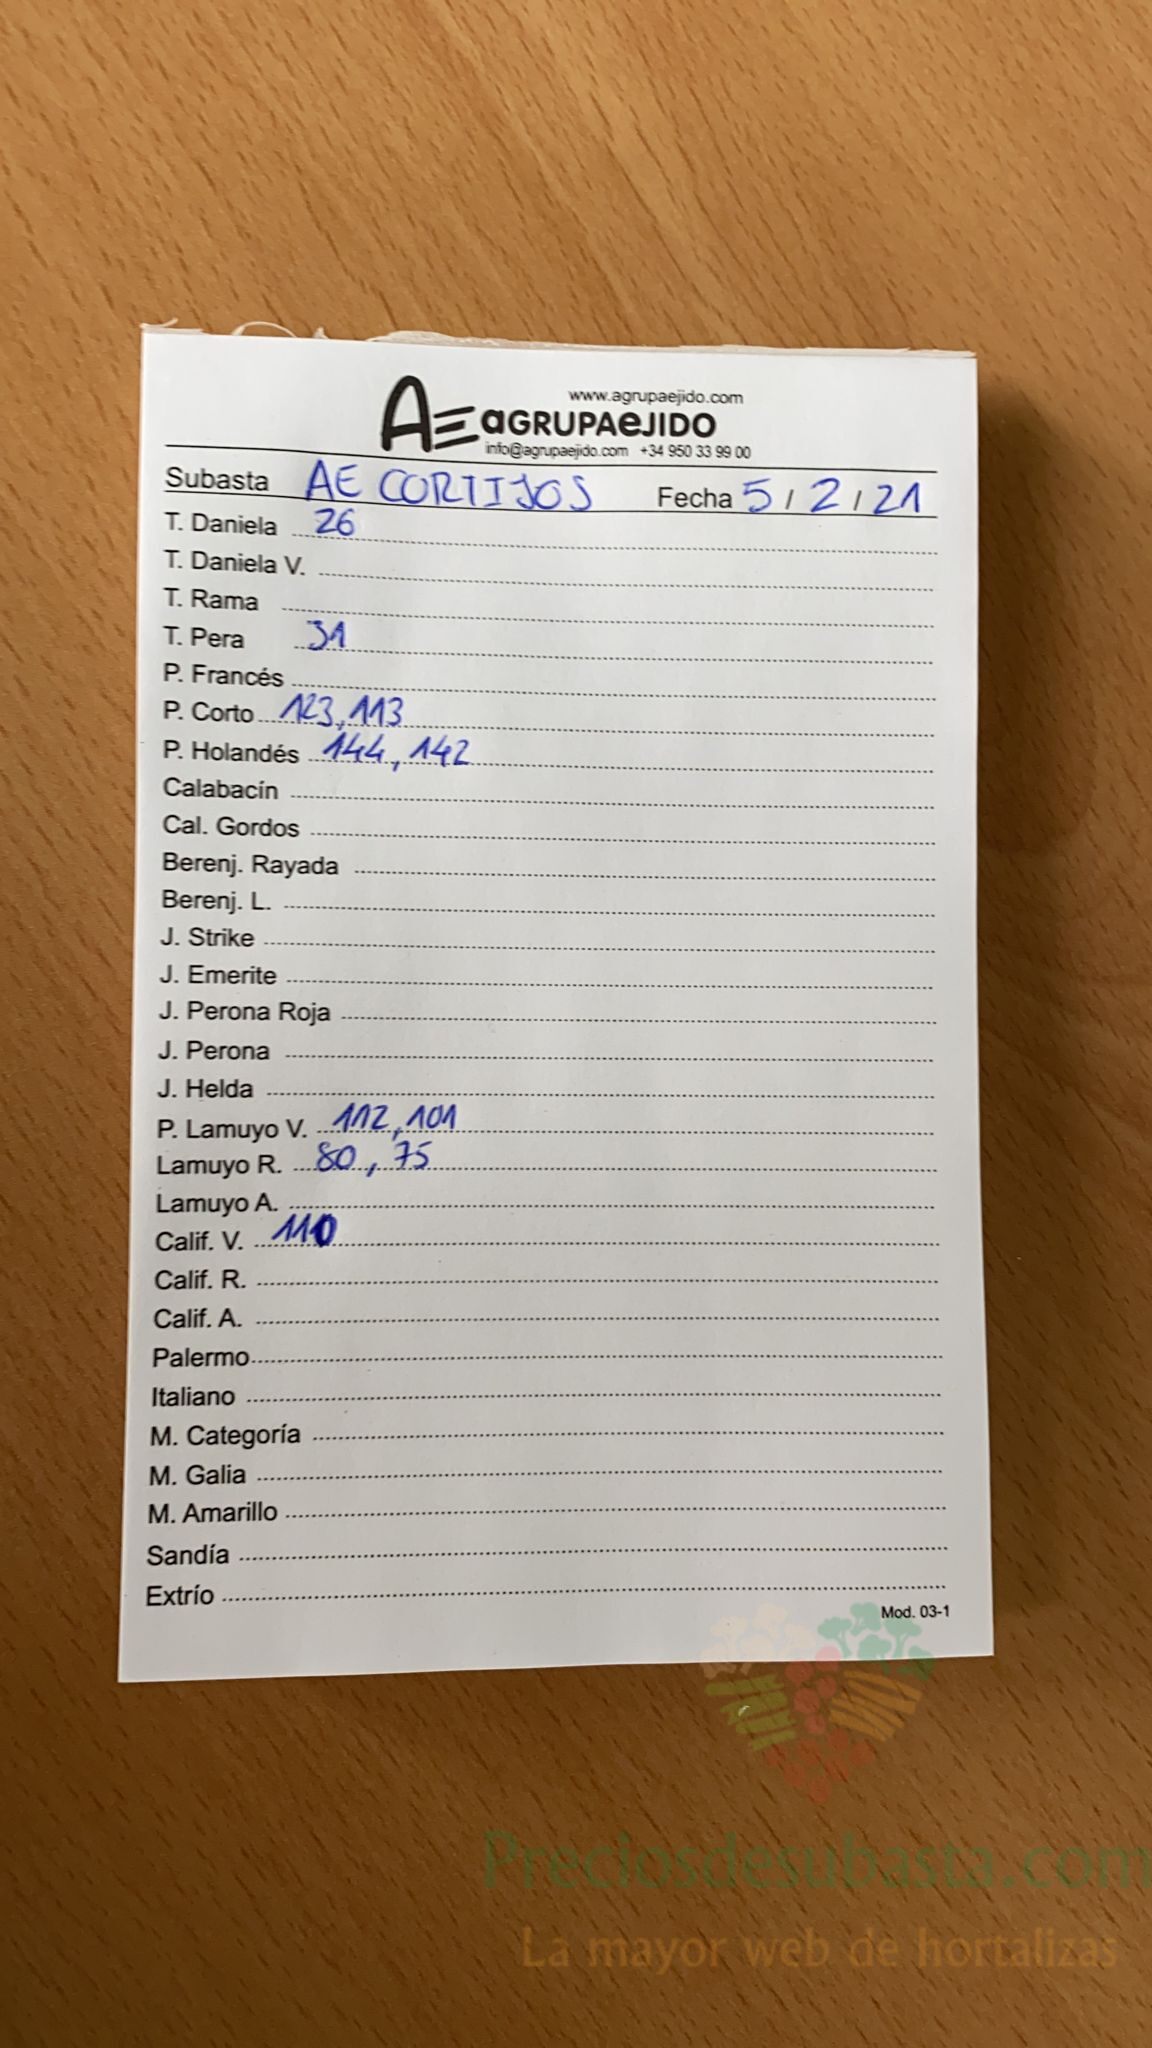 www.agrupaejido.com
AE aGRUPAeJIDO
info@agrupaejido.com +34 950 33 99 00
Subasta AE CORTIJOS Fecha 5 / 2 / 21
T. Daniela 26
T. Daniela V.
T. Rama
T. Pera 31
P. Francés
P. Corto 123, 113
P. Holandés 144, 142
Calabacín
Cal. Gordos
Berenj. Rayada
Berenj. L.
J. Strike
J. Emerite
J. Perona Roja
J. Perona
J. Helda
P. Lamuyo V. 112, 101
Lamuyo R. 80, 75
Lamuyo A.
Calif. V. 110
Calif. R.
Calif. A.
Palermo
Italiano
M. Categoría
M. Galia
M. Amarillo
Sandía
Extrío
Mod. 03-1
Preciosdesubasta.com
La mayor web de hortalizas